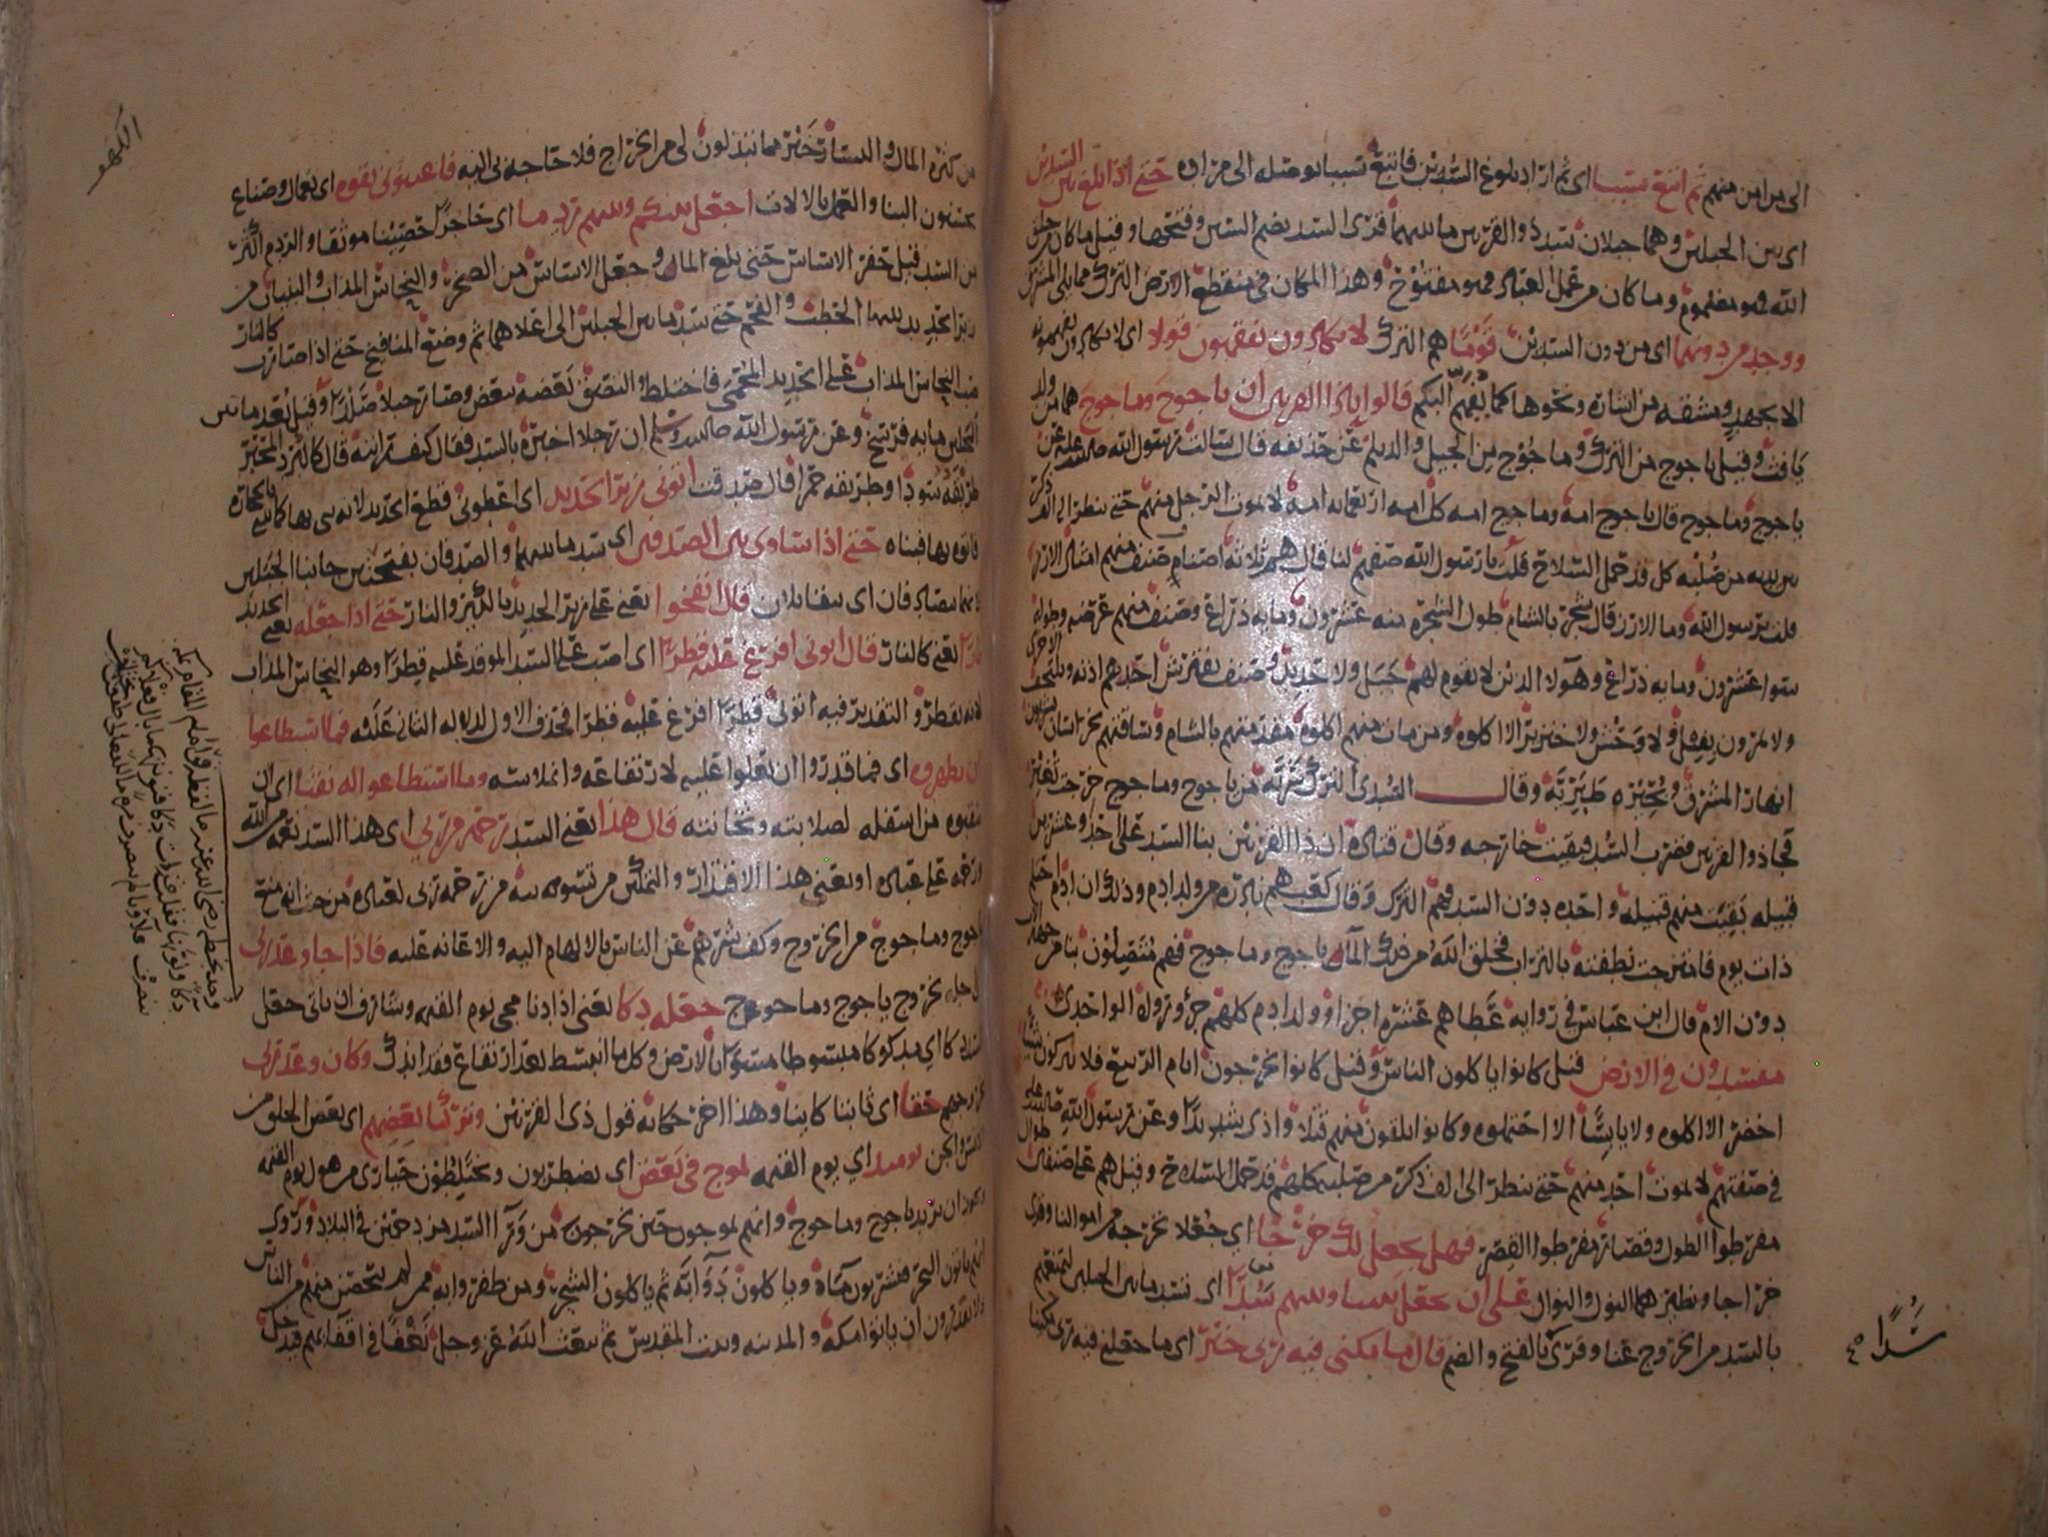 الى من امن منهم ثم اتبع سببا اى ثم اراد بلوغ السدين فاتبع سببا يوصله الى مراده حتى اذا بلغ بين السدين
اى بين الجبلين وهما جبلان سد ذو القرنين ما بينهما قرى السد بضم السين وفتحها وقيل ما كان من خلق
الله فهو مضموم وما كان من عمل العباد فهو مفتوح وهذا المكان فى منقطع الارض الترك مما يلى المشرق
ووجد من دونهما اى من دون السدين قوما هم الترك لا يكادون يفقهون قولا اى لا يكادون يفهمونه
الا بجهد ومشقه من اشاره ونحوها كما يفهم البكم قالوا ياذا القرنين ان ياجوج وماجوج هما من ولد
يافث وقيل ياجوج من الترك وماجوج من الجيل والديلم عن حذيفه قال سالت رسول الله عن
ياجوج وماجوج قال ياجوج امه وماجوج امه كل امه اربعمايه امه لا يموت الرجل منهم حتى ينظر الى الف ذكر
بين يديه من صلبه كل قد حمل السلاح قلت يا رسول الله صفهم لنا قال هم ثلاثه اصناف صنف منهم امثال الارز
قلت يرسول الله وما الارز قال شجر بالشام طول الشجره منه عشرون ومايه ذراع وصنف منهم عرضه وطوله
سوا عشرون ومايه ذراع وهولا الذين لا يقوم لهم جبل ولا حديد وصنف يفترش احدهم اذنه ويلتحف الاخرى
ولا يمرون بفيل ولا وحش ولا خنزير الا اكلوه ومن مات منهم اكلوه مقدمتهم بالشام وساقتهم بخراسان يشربون
انهار المشرق وبحيره طبريه وقال السدى الترك سريه من ياجوج وماجوج خرجت تغير
فجا ذو القرنين فضرب السد فبقيت خارجه وقال قتاده ان ذا القرنين بنا السد على احد وعشرين
قبيله بقيت منهم قبيله واحده دون السد فهم الترك وقال كعب هم نادره من ولد ادم وذلك ان ادم احتلم
ذات يوم فامتزجت نطفته بالتراب فخلق الله من ذلك المآ ياجوج وماجوج فهم متصلون بنا من جهه الاب
دون الام قال ابن عباس فى روايه عطا هم عشره اجزا وولد ادم كلهم جزؤ
مفسدون فى الارض قيل كانوا ياكلون الناس وقيل كانوا يخرجون ايام الربيع فلا يتركون شيا
اخضر الا اكلوه ولا يابسا الا احتملوه وكانوا يلقون منهم قتلا واذى شديدا وعن رسول الله
فى صفتهم لا يموت احد منهم حتى ينظر الى الف ذكر من صلبه كلهم قد حمل السلاح وقيل هم على صنفين طوال
مفرطوا الطول وقصار مفرطوا القصر فهل نجعل لك خرجا اى جعلا نخرجه من اموالنا وقرى
خراجا ونظيرهما النول والنوال على ان تجعل بيننا وبينهم سدا اى تسد ما بين الجبلين لتمنعهم
بالسد من الخروج علينا وقرى بالفتح والضم قال ما مكنى فيه ربى خير اى ما جعلنى فيه ربى مكينا
سدا
الكهف
من كثره المال واليسار خير مما تبذلون لى من الخراج فلا حاجه بى اليه فاعينونى بقوه اى بعمال وصناع
يحسنون البنا والعمل بالالات اجعل بينكم وبينهم ردما اى حاجزا حصينا موثقا والردم اكثر
من السد قيل حفر الاساس حتى بلغ الما وجعل الاساس من الصخر والنحاس المذاب والبنيان من
زبر الحديد بينها الحطب والفحم حتى سد ما بين الجبلين الى اعلاهما ثم وضع المنافيخ حتى اذا صارت كالنار
صب النحاس المذاب على الحديد المحمى فاختلط والتصق بعضه ببعض وصار جبلا صلدا وقيل بعد ما بين
الجبلين مايه فرسخ وعن رسول الله ان رجلا اخبره بالسد فقال كيف رايته قال كالبرد المحبر
طريقه سودا وطريقه حمرا قال صدقت اتونى زبر الحديد اى اعطونى قطع الحديد
فاتوه بها فبناه حتى اذا ساوى بين الصدفين اى سد ما بينهما والصدفان بفتحتين جانبا الجبلين
لانهما يتصادفان اى يتقابلان قال انفخوا يعنى على زبر الحديد بالكير والنار حتى اذا جعله يعنى الحديد
نارا يعنى كالنار قال اتونى افرغ عليه قطرا اى اصب على السد الموقد عليه قطرا وهو النحاس المذاب
لانه يقطر والتقدير فيه اتونى قطرا افرغ عليه قطرا فحذف الاول لدلاله الثانى عليه فما اسطاعوا
ان يظهروه اى فما قدروا ان يعلوا عليه لارتفاعه وانملاسه وما استطاعوا له نقبا اى ان
ينقبوه من اسفله لصلابته وثخانته قال هذا يعنى السد رحمه من ربى اى هذا السد نعمه من الله
ورحمه على عباده او يعنى هذا الاقتدار والتمكين من تسويته من رحمه ربى لعباده من حيث انه منع
ياجوج وماجوج من الخروج وكف شرهم عن الناس بالالهام اليه والاعانه عليه فاذا جا وعد ربى
خروج ياجوج وماجوج جعله دكا يعنى اذا دنا مجى يوم القيمه وشارف ان ياتى جعل
السد دكا اى مدكوكا مبسوطا مسوى بالارض وكل ما انبسط بعد ارتفاع فقد اندك وكان وعد ربى
بخروجهم حقا اى ثابتا كاينا وهذا اخر حكايه قول ذى القرنين وتركنا بعضهم اى بعض الخلق من
الانس والجن يوميذ اى يوم القيمه يموج فى بعض اى يضطربون ويختلطون حيارى من هول يوم القيمه
ويجوز ان يريد ياجوج وماجوج وانهم يموجون حين يخرجون من ورا السد مزدحمين فى البلاد وروى
انهم ياتون البحر فيشربون مآه وياكلون دوابه ثم ياكلون الشجر ومن ظفروا به ممن لم يتحصن منهم من الناس
ولا يقدرون ان ياتوا مكه والمدينه وبيت المقدس ثم يبعث الله عز وجل نغفا فى اقفايهم فيدخل